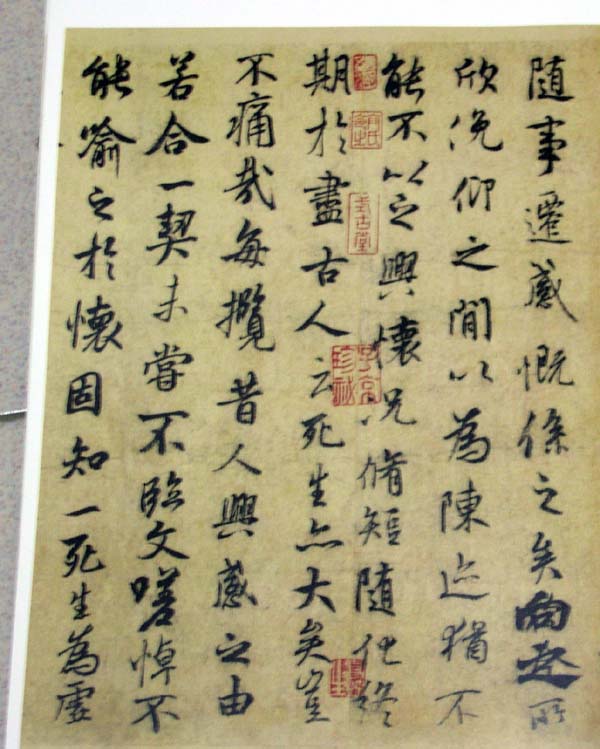 隨事遷感慨係之矣向之所
欣俛仰之閒以為陳迹猶不
能不以之興懷況脩短隨化終
期於盡古人云死生亦大矣豈
不痛哉每攬昔人興感之由
若合一契未嘗不臨文嗟悼不
能喻之於懷固知一死生為虛
式古堂
子京珍秘